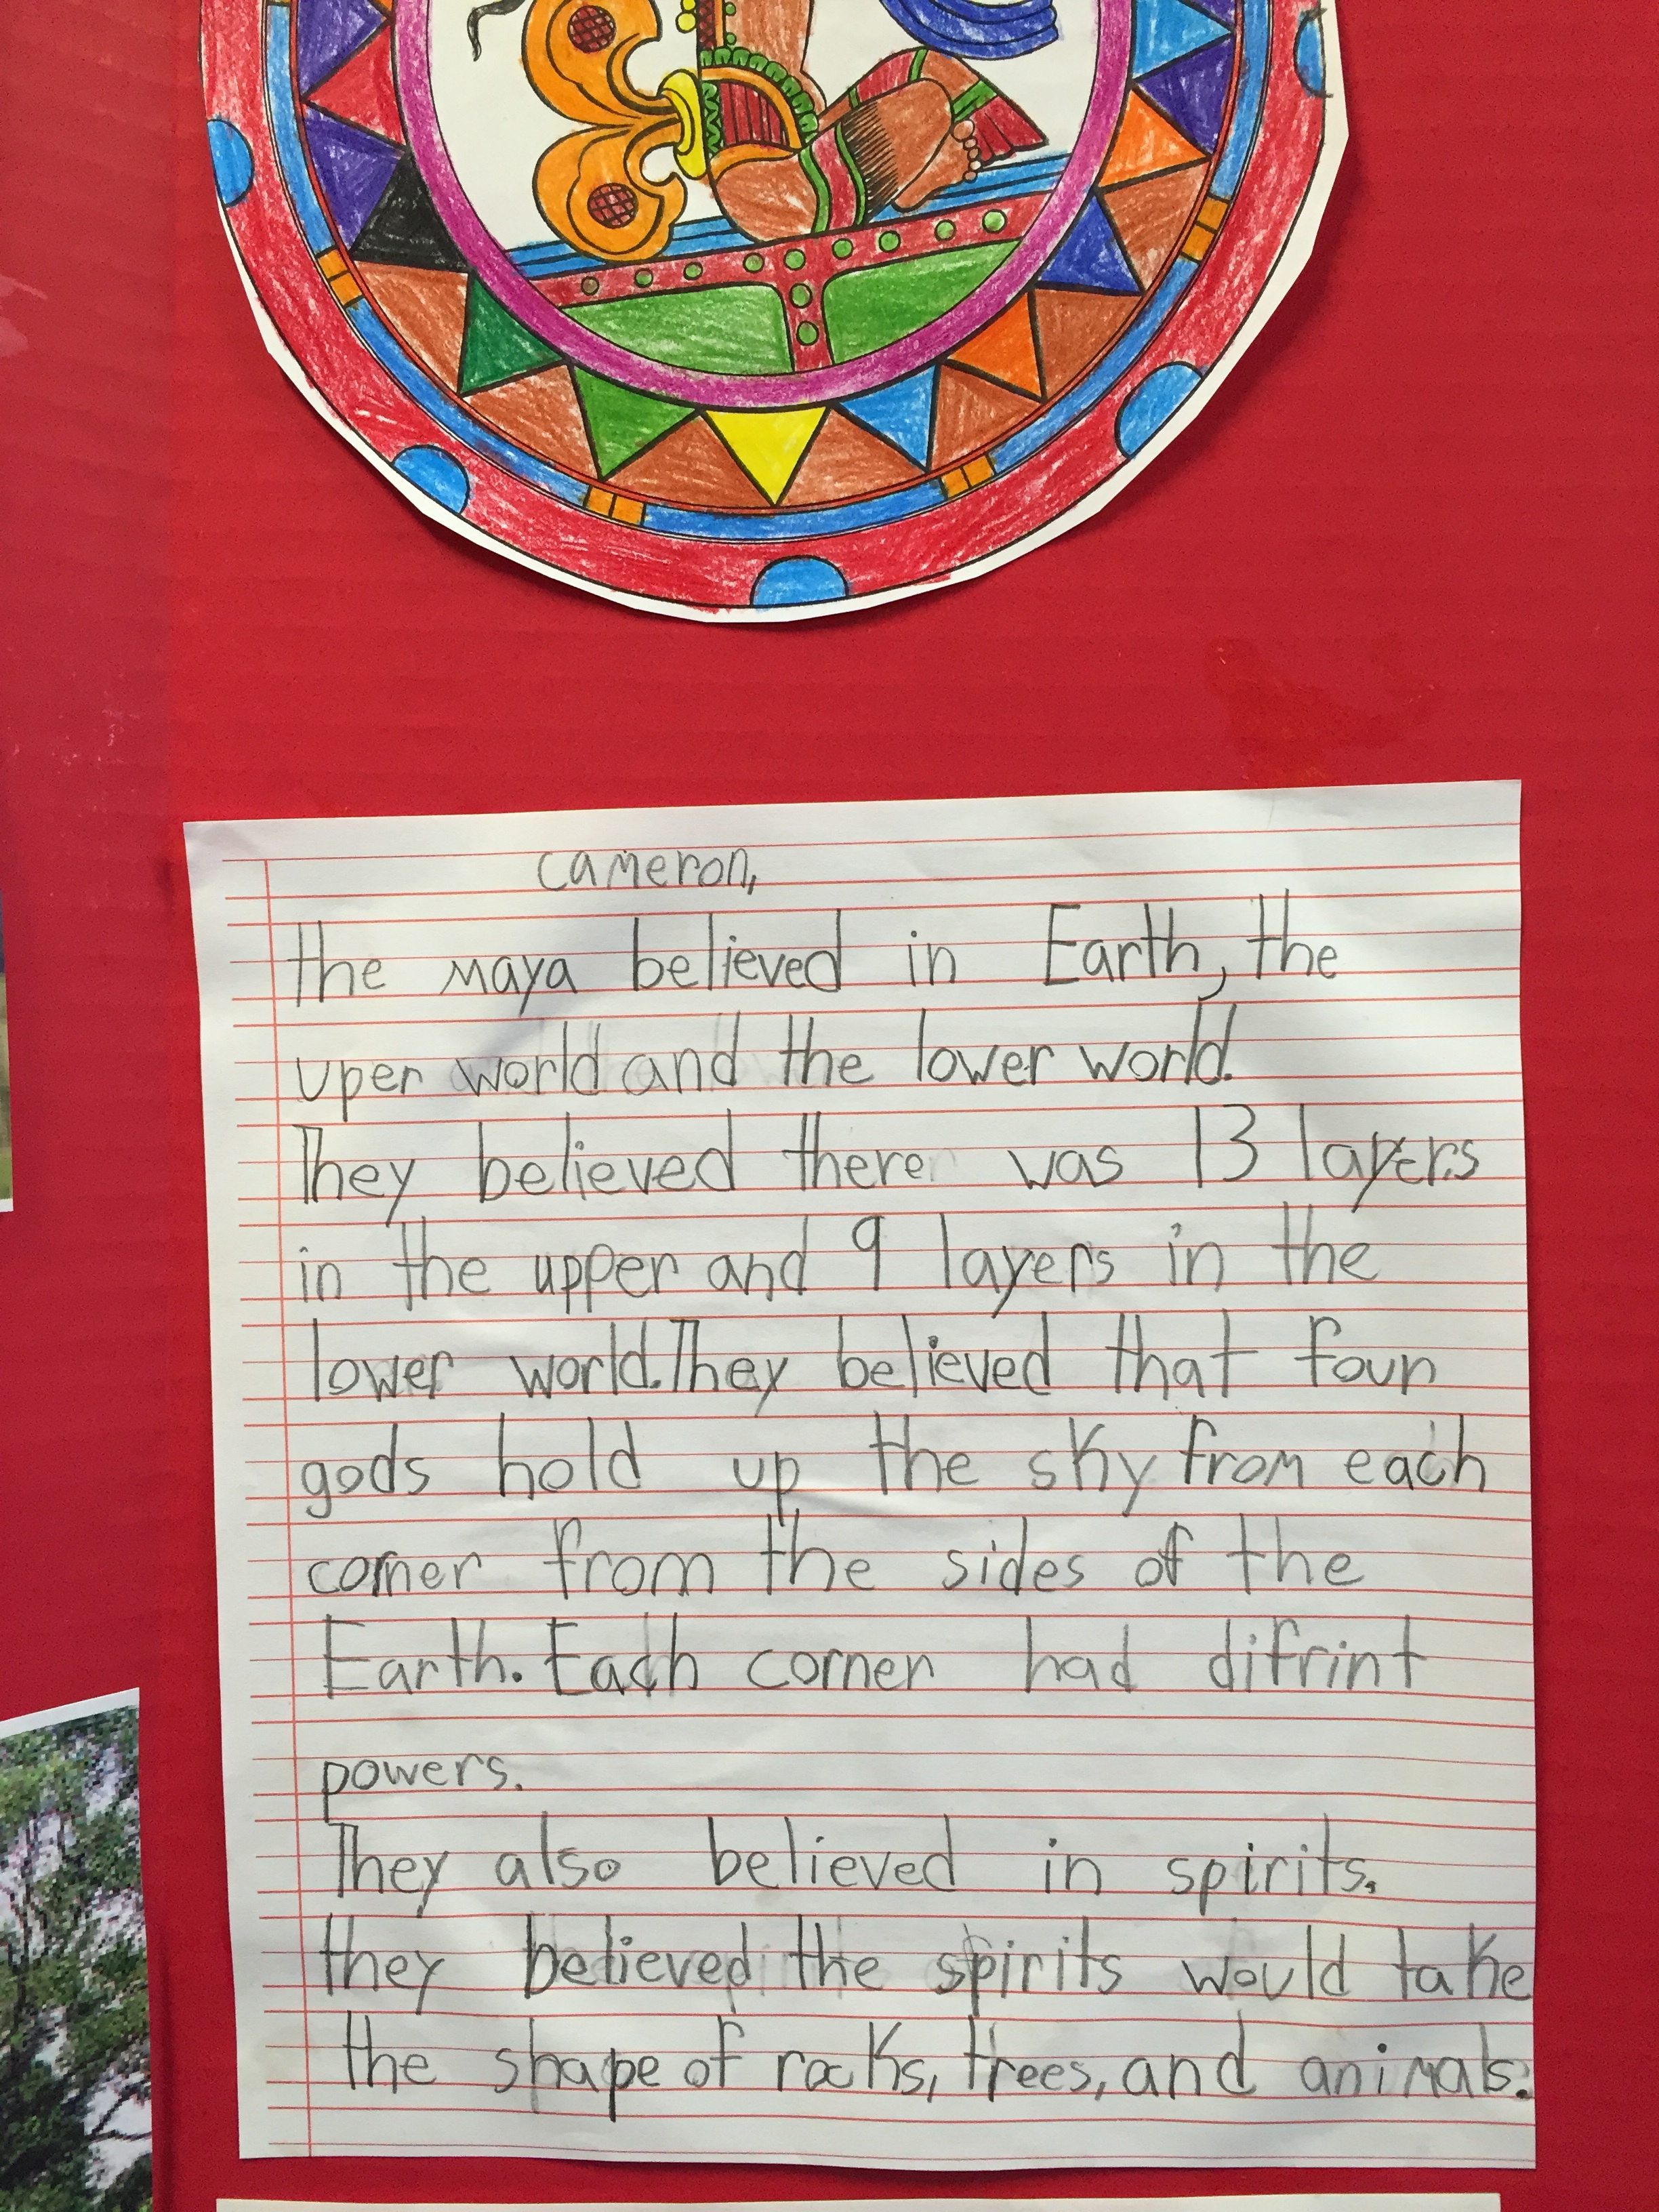 cameron,
the maya believed in Earth, the
uper world and the lower world.
They believed there was 13 layers
in the upper and 9 layers in the
lower world. They believed that four
gods hold up the sky from each
corner from the sides of the
Earth. Each corner had difrint
powers.
They also believed in spirits.
they believed the spirits would take
the shape of rocks, trees, and animals.